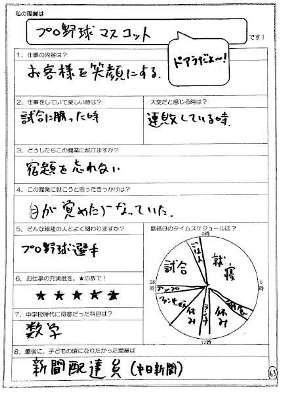 私の職業は
プロ野球マスコット
です！
ドアラだよ〜！
1．仕事の内容は？
お客様を笑顔にする。
2．仕事をしていて楽しい時は？
試合に勝った時
大変だと感じる時は？
連敗している時。
3．どうしたらこの職業に就けますか？
宿題を忘れない
4．この職業に就こうと思ったきっかけは？
目が覚めたらなっていた。
5．どんな職種の人とよく関わりますか？
プロ野球選手
6．お仕事の充実度を、★の数で！
★★★★★
7．中学校時代に得意だった科目は？
数学
8．最後に、子どもの頃になりたかった職業は
新聞配達員（中日新聞）
勤務日のタイムスケジュールは？
0時
試合
就寝
休み
12時
63